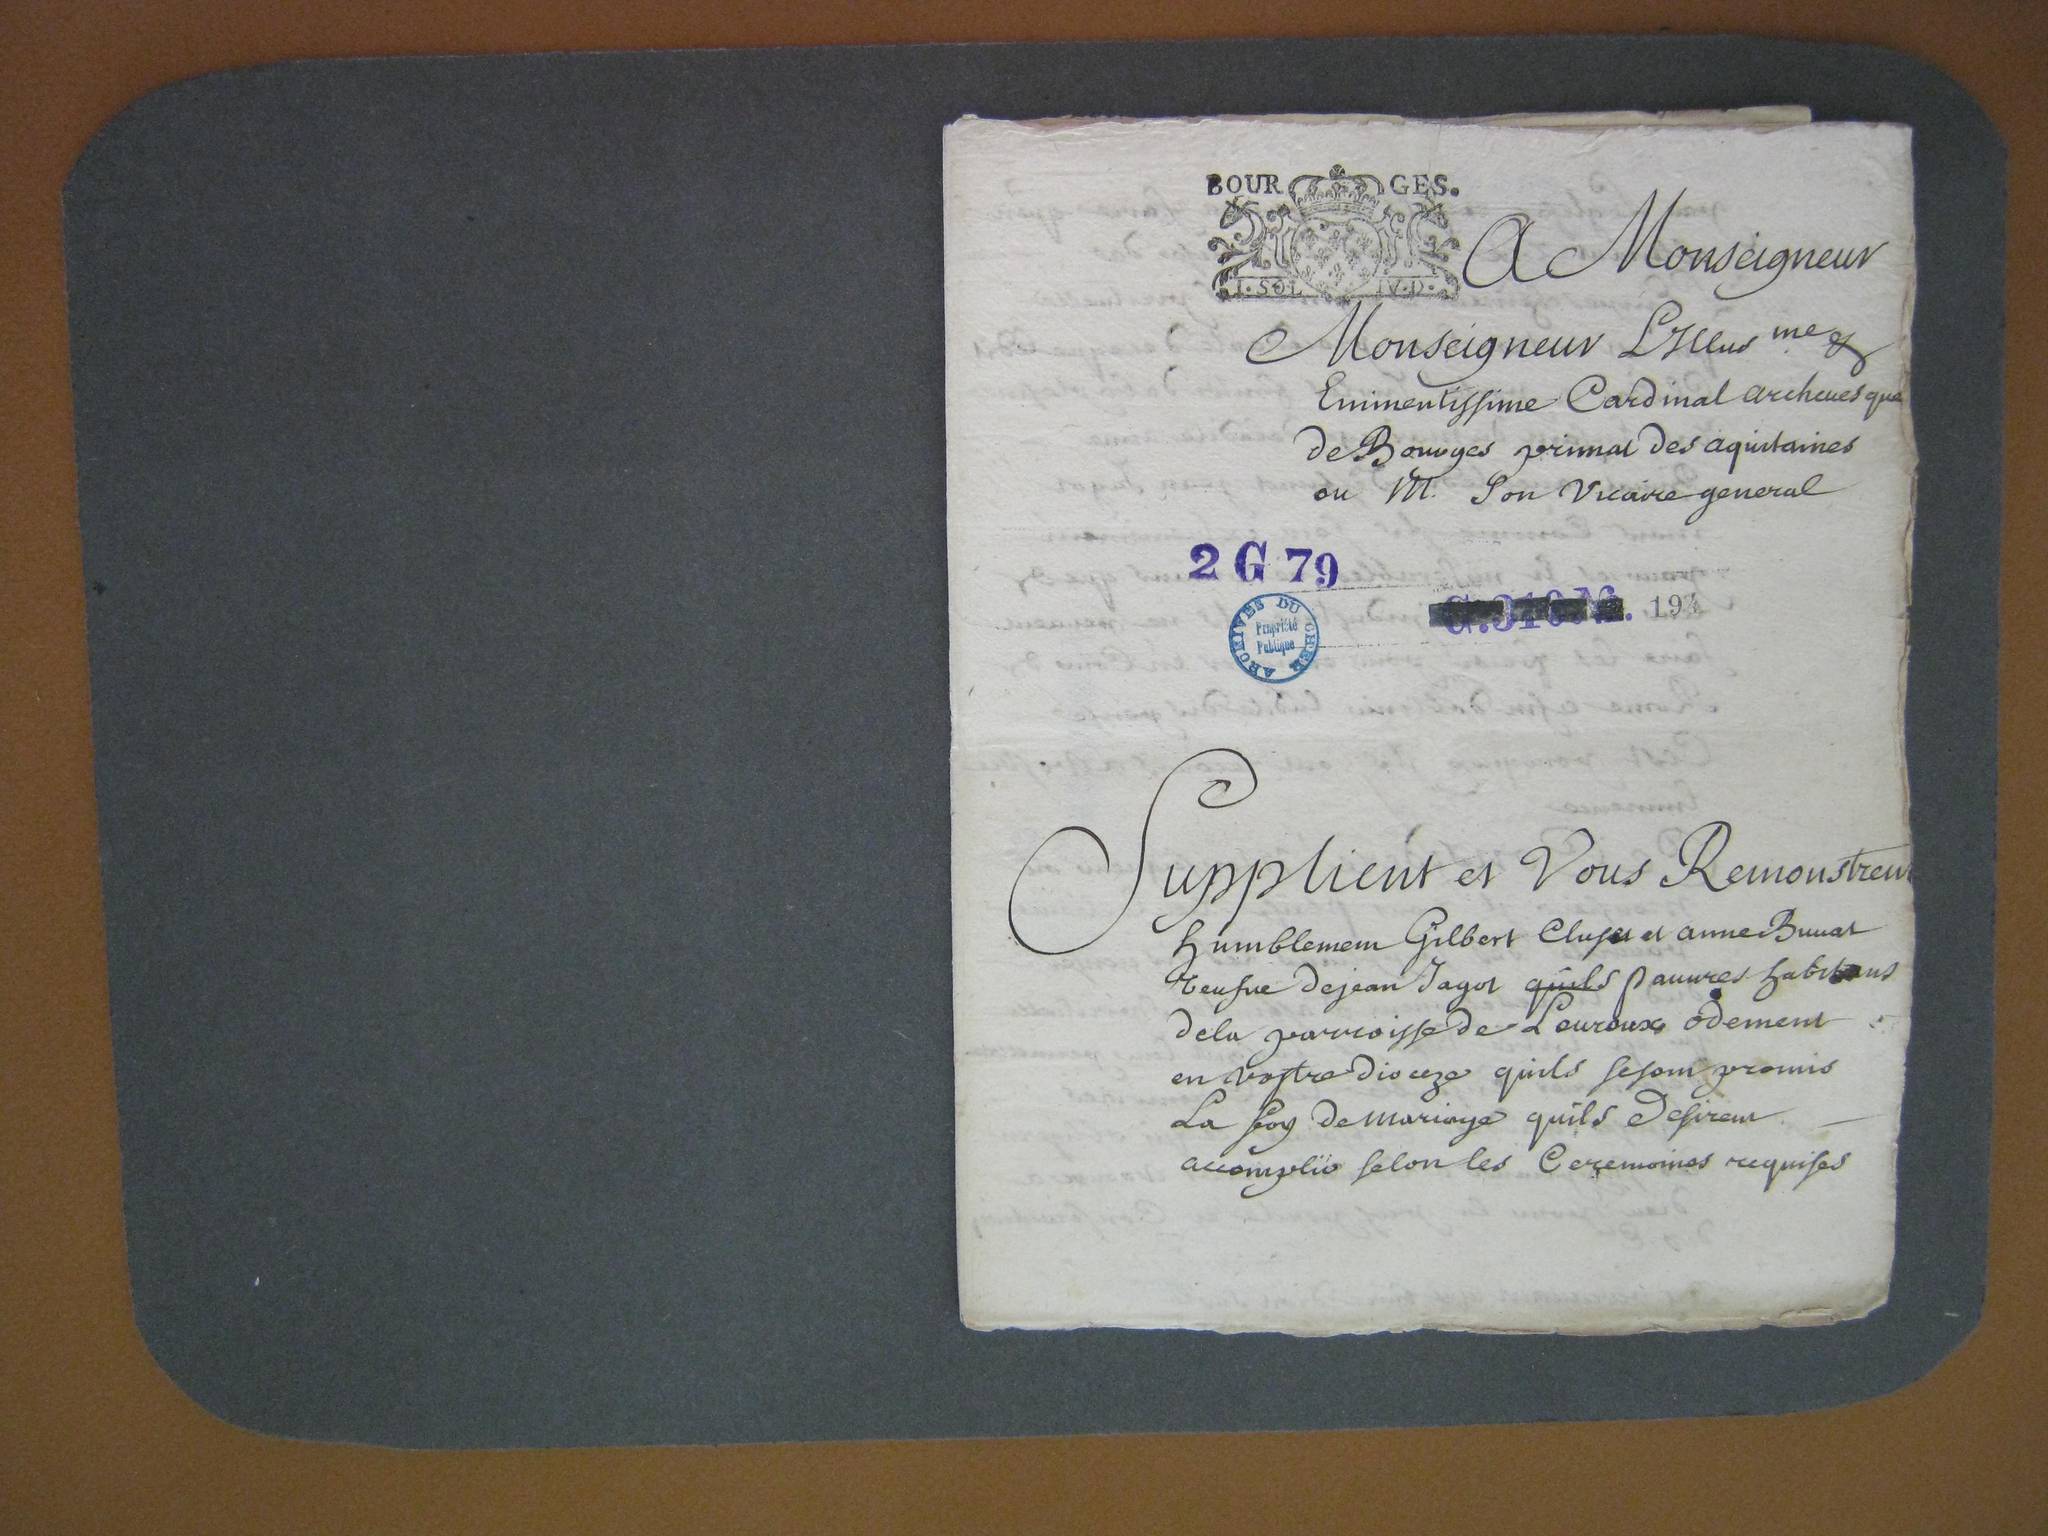 BOURGES.
I. SOL IV. D.
A Monseigneur
Monseigneur L'Illus me &
Eminentissime Cardinal archeuesque
de Bourges primat des aquitaines
ou M. Son Vicaire general
2 G 79
194
ARCHIVES DU CHER
Propriété
Publique
Supplient et Vous Remonstrent
humblement Gilbert Cluset et anne Buuat
veufue de jean Jagot quils pauures habitans
de la parroisse de Leuroux
en vostre dioceze quils se sont promis
La foy de mariage quils desirent
accomplir selon les Ceremoines requises